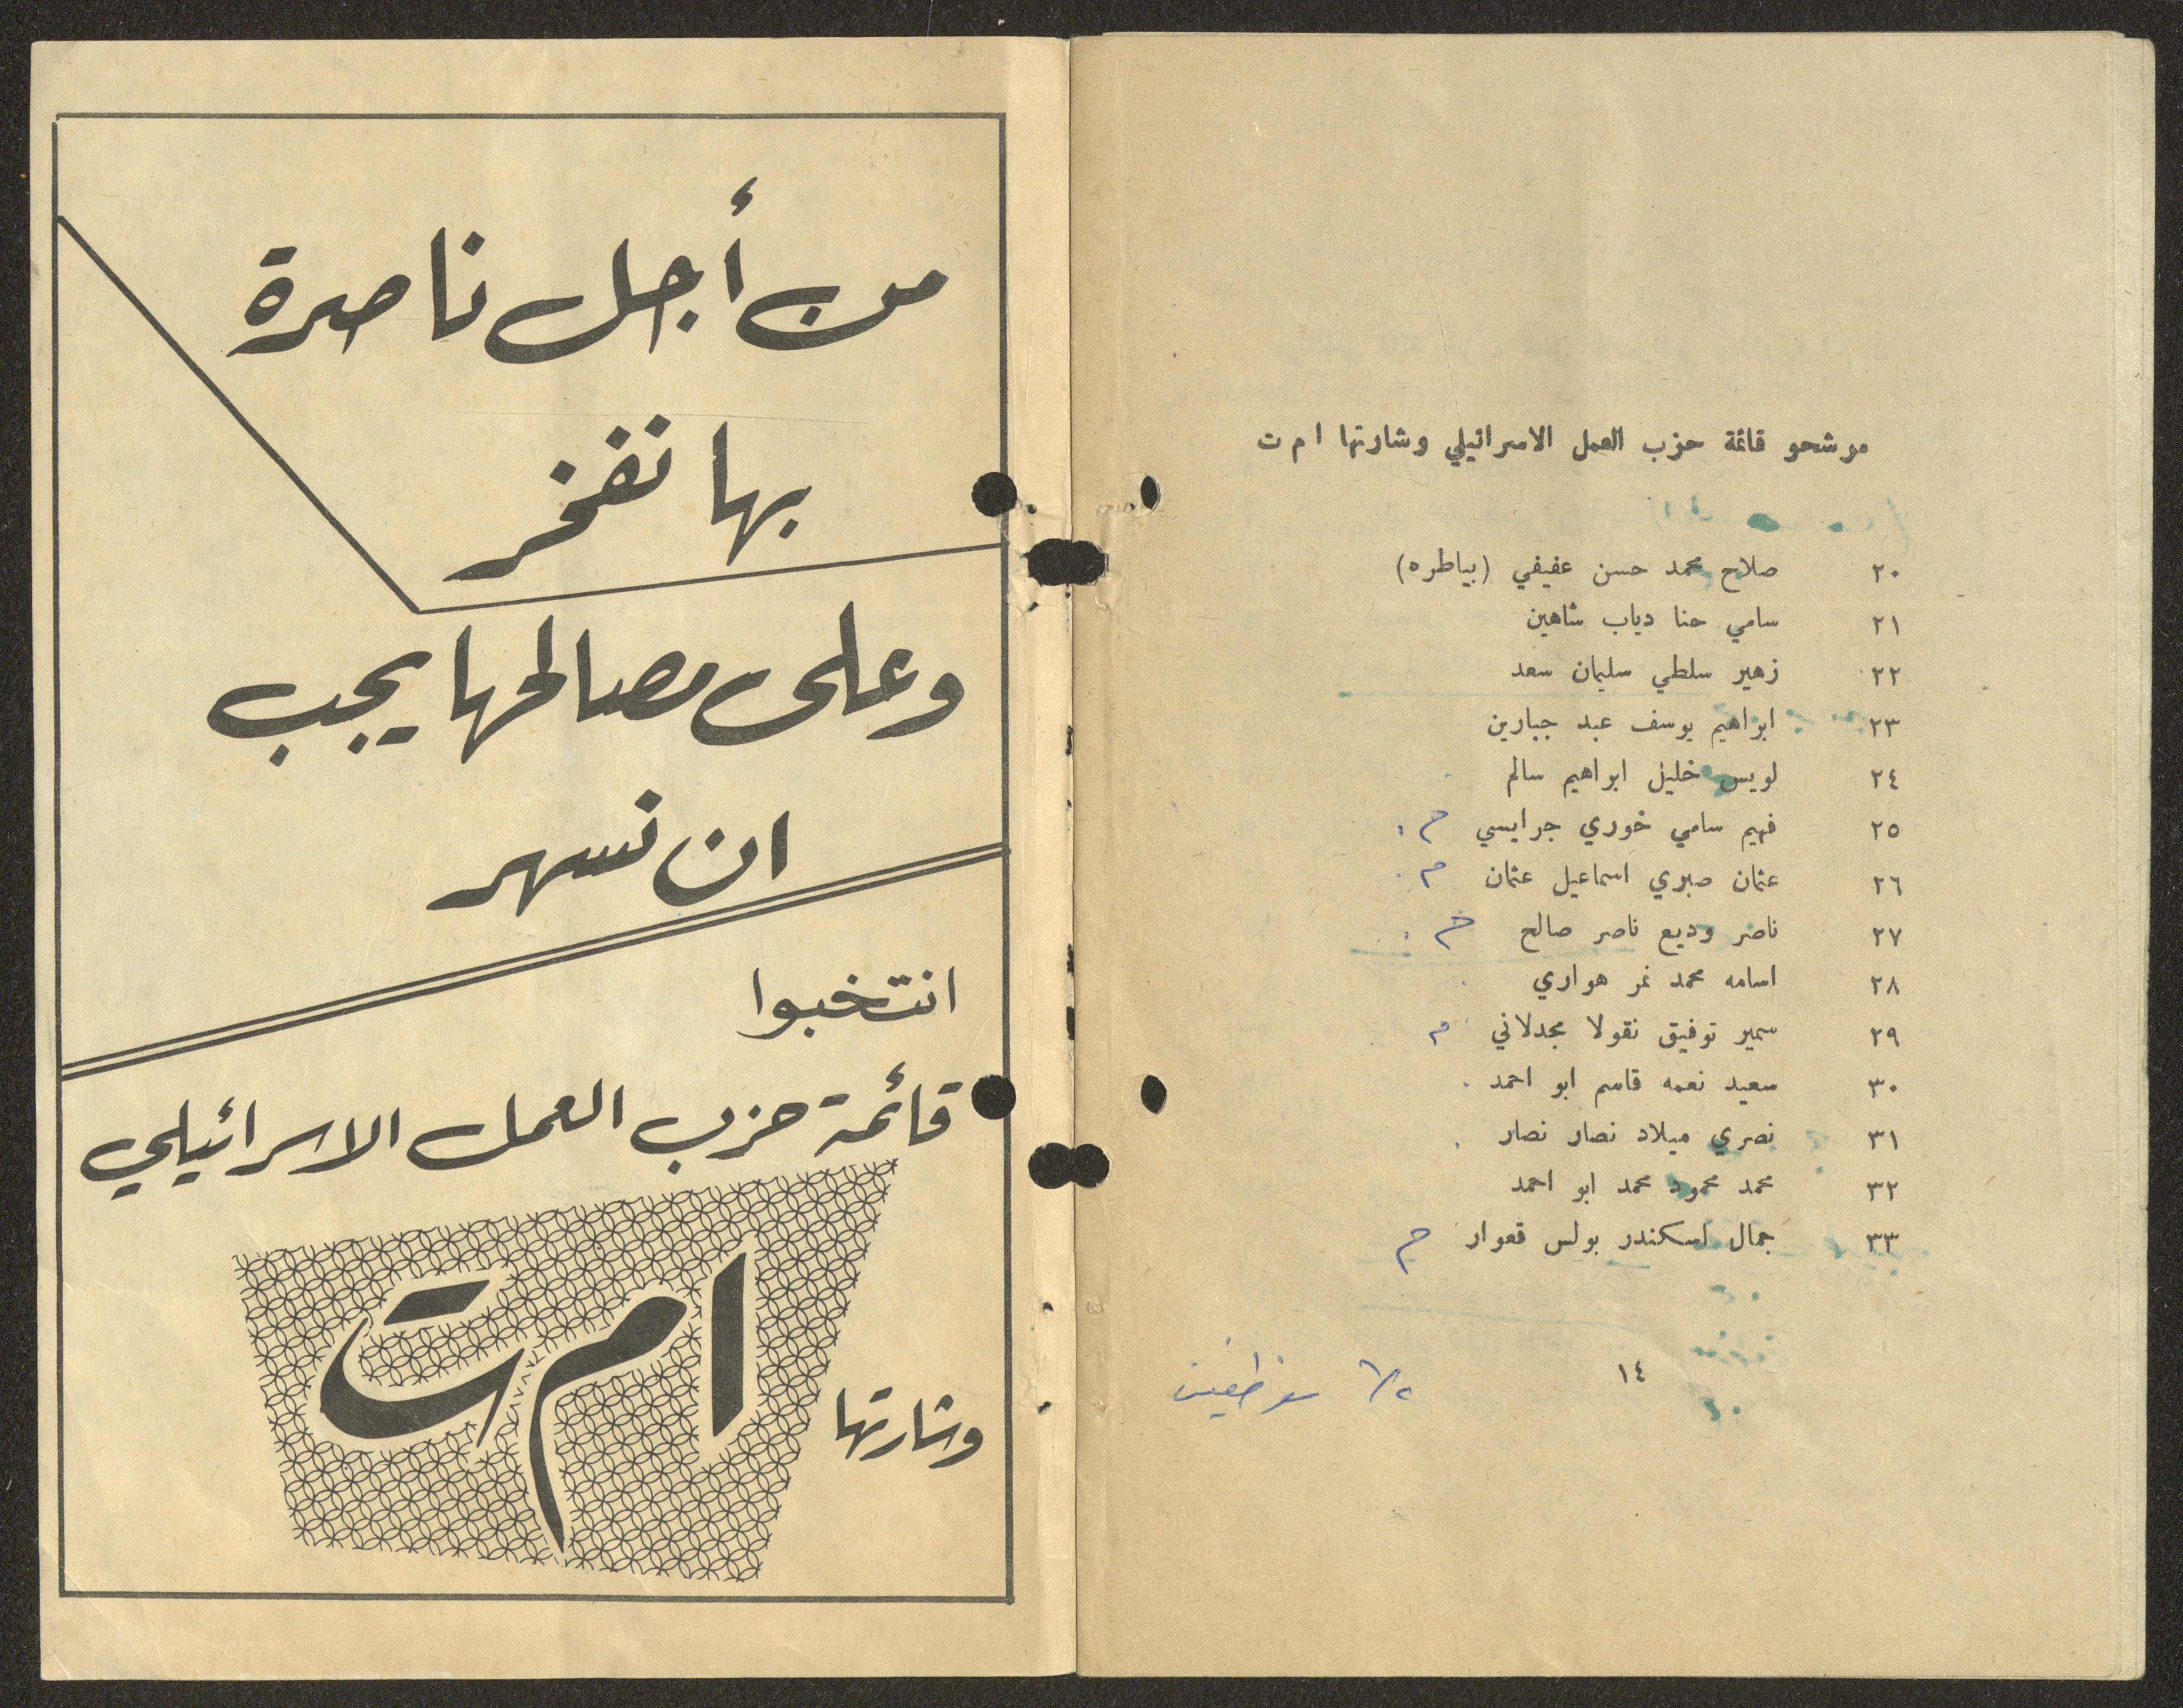 مرشحو قائمة حزب العمل الاسرائيلي وشارتها ا م ت
٢٠ صلاح محمد حسن عفيفي (بياطره)
٢١ سامي حنا دياب شاهين
٢٢ زهير سلطي سليمان سعد
٢٣ ابراهيم يوسف عبد جبارين
٢٤ لويس خليل ابراهيم سالم
٢٥ فهيم سامي خوري جرايسي م
٢٦ عثمان صبري اسماعيل عثمان م
٢٧ ناصر وديع ناصر صالح
٢٨ اسامه محمد نمر هواري
٢٩ سمير توفيق نقولا مجدلاني م
٣٠ سعيد نعمه قاسم ابو احمد
٣١ نصري ميلاد نصار نصار
٣٢ محمد محمود محمد ابو احمد
٣٣ جمال اسكندر بولس قعوار م
١٤
من أجل ناصرة
بها نفخر
وعلى مصالحها يجب
ان نسهر
انتخبوا
قائمة حزب العمل الاسرائيلي
وشارتها ا م ت